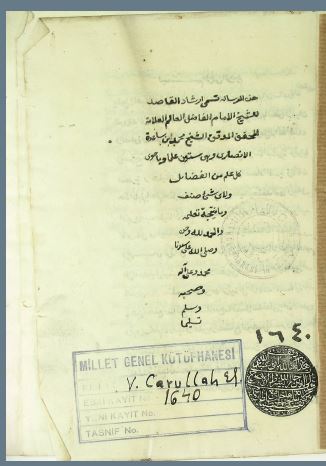 هذه الرسالة تسمى ارشاد القاصد
للشيخ الامام الفاضل العالم العلامة
المحقق المدقق الشيخ محمد بن ساعدة
الانصارى وبين ستين علما
كل علم من الفضائل
ولاى شئ صنف
وما نتيجة تعلمه
والحمد لله
وصلى الله على سيدنا
محمد وعلى آله
وصحبه
وسلم
تسليما
١٦٤٠
MİLLET GENEL KÜTÜPHANESİ
V. Carullah Ef.
ESKİ KAYIT No.
1640
YENİ KAYIT No.
TASNİF No.